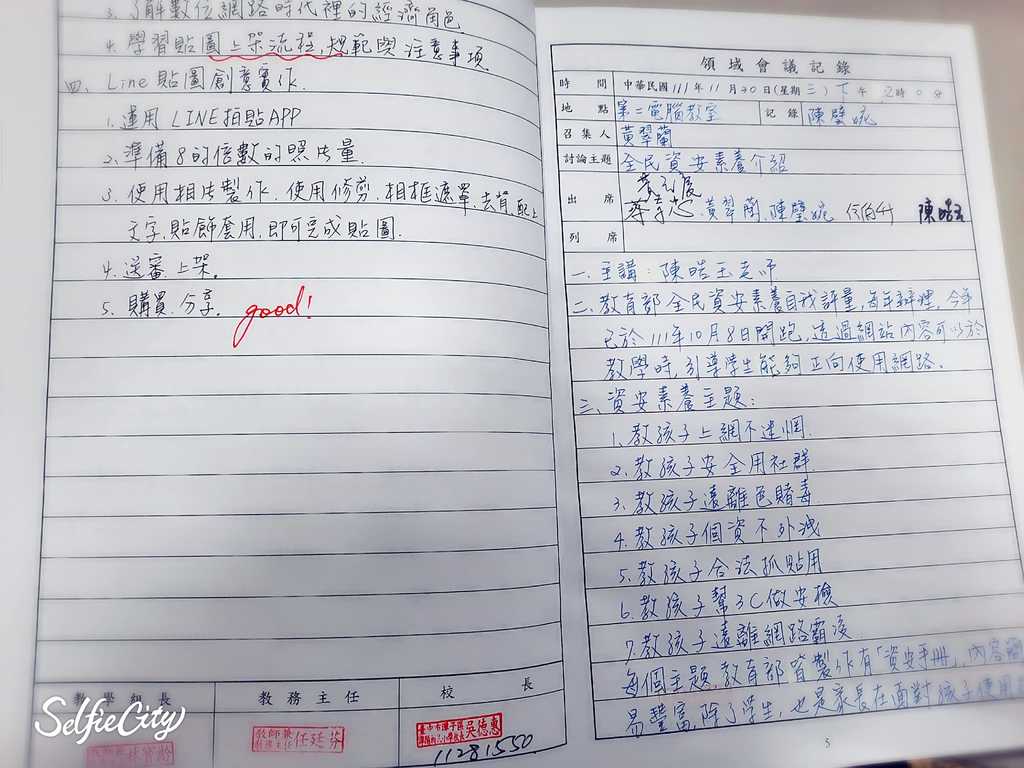 3. 了解數位網路時代裡的經濟角色
4. 學習貼圖上架流程,規範與注意事項
四、Line貼圖創意實作
1. 運用LINE拍貼APP
2. 準備8的倍數的照片量
3. 使用相片製作,使用修剪,相框遮罩,去背,配上
文字,貼飾套用,即可完成貼圖.
4. 送審上架。
5. 購買.分享。
good!
教學組長
教務主任
校長
教師兼任
教務主任 任廷芬
吳德惠
11281550
SelfieCity
領域會議記錄
時間 中華民國 111 年 11 月 30 日(星期 三 ) 下 午 2 時 0 分
地點 第二電腦教室 記錄 陳壁婉
召集人 黃翠蘭
討論主題 全民資安素養介紹
出席 黃翠蘭.陳壁婉
列席
一、主講:陳皓玉老師
二、教育部全民資安素養自我評量,每年辦理,今年
已於111年10月8日開跑,透過網站內容可以於
教學時,引導學生能夠正向使用網路。
三、資安素養主題:
1. 教孩子上網不迷惘.
2. 教孩子安全用社群
3. 教孩子遠離色賭毒
4. 教孩子個資不外洩
5. 教孩子合法抓貼用
6. 教孩子幫3C做安檢
7. 教孩子遠離網路霸凌
每個主題,教育部皆製作有「資安手冊」,內容簡
易豐富,除了學生,也是家長在面對孩子使用
5